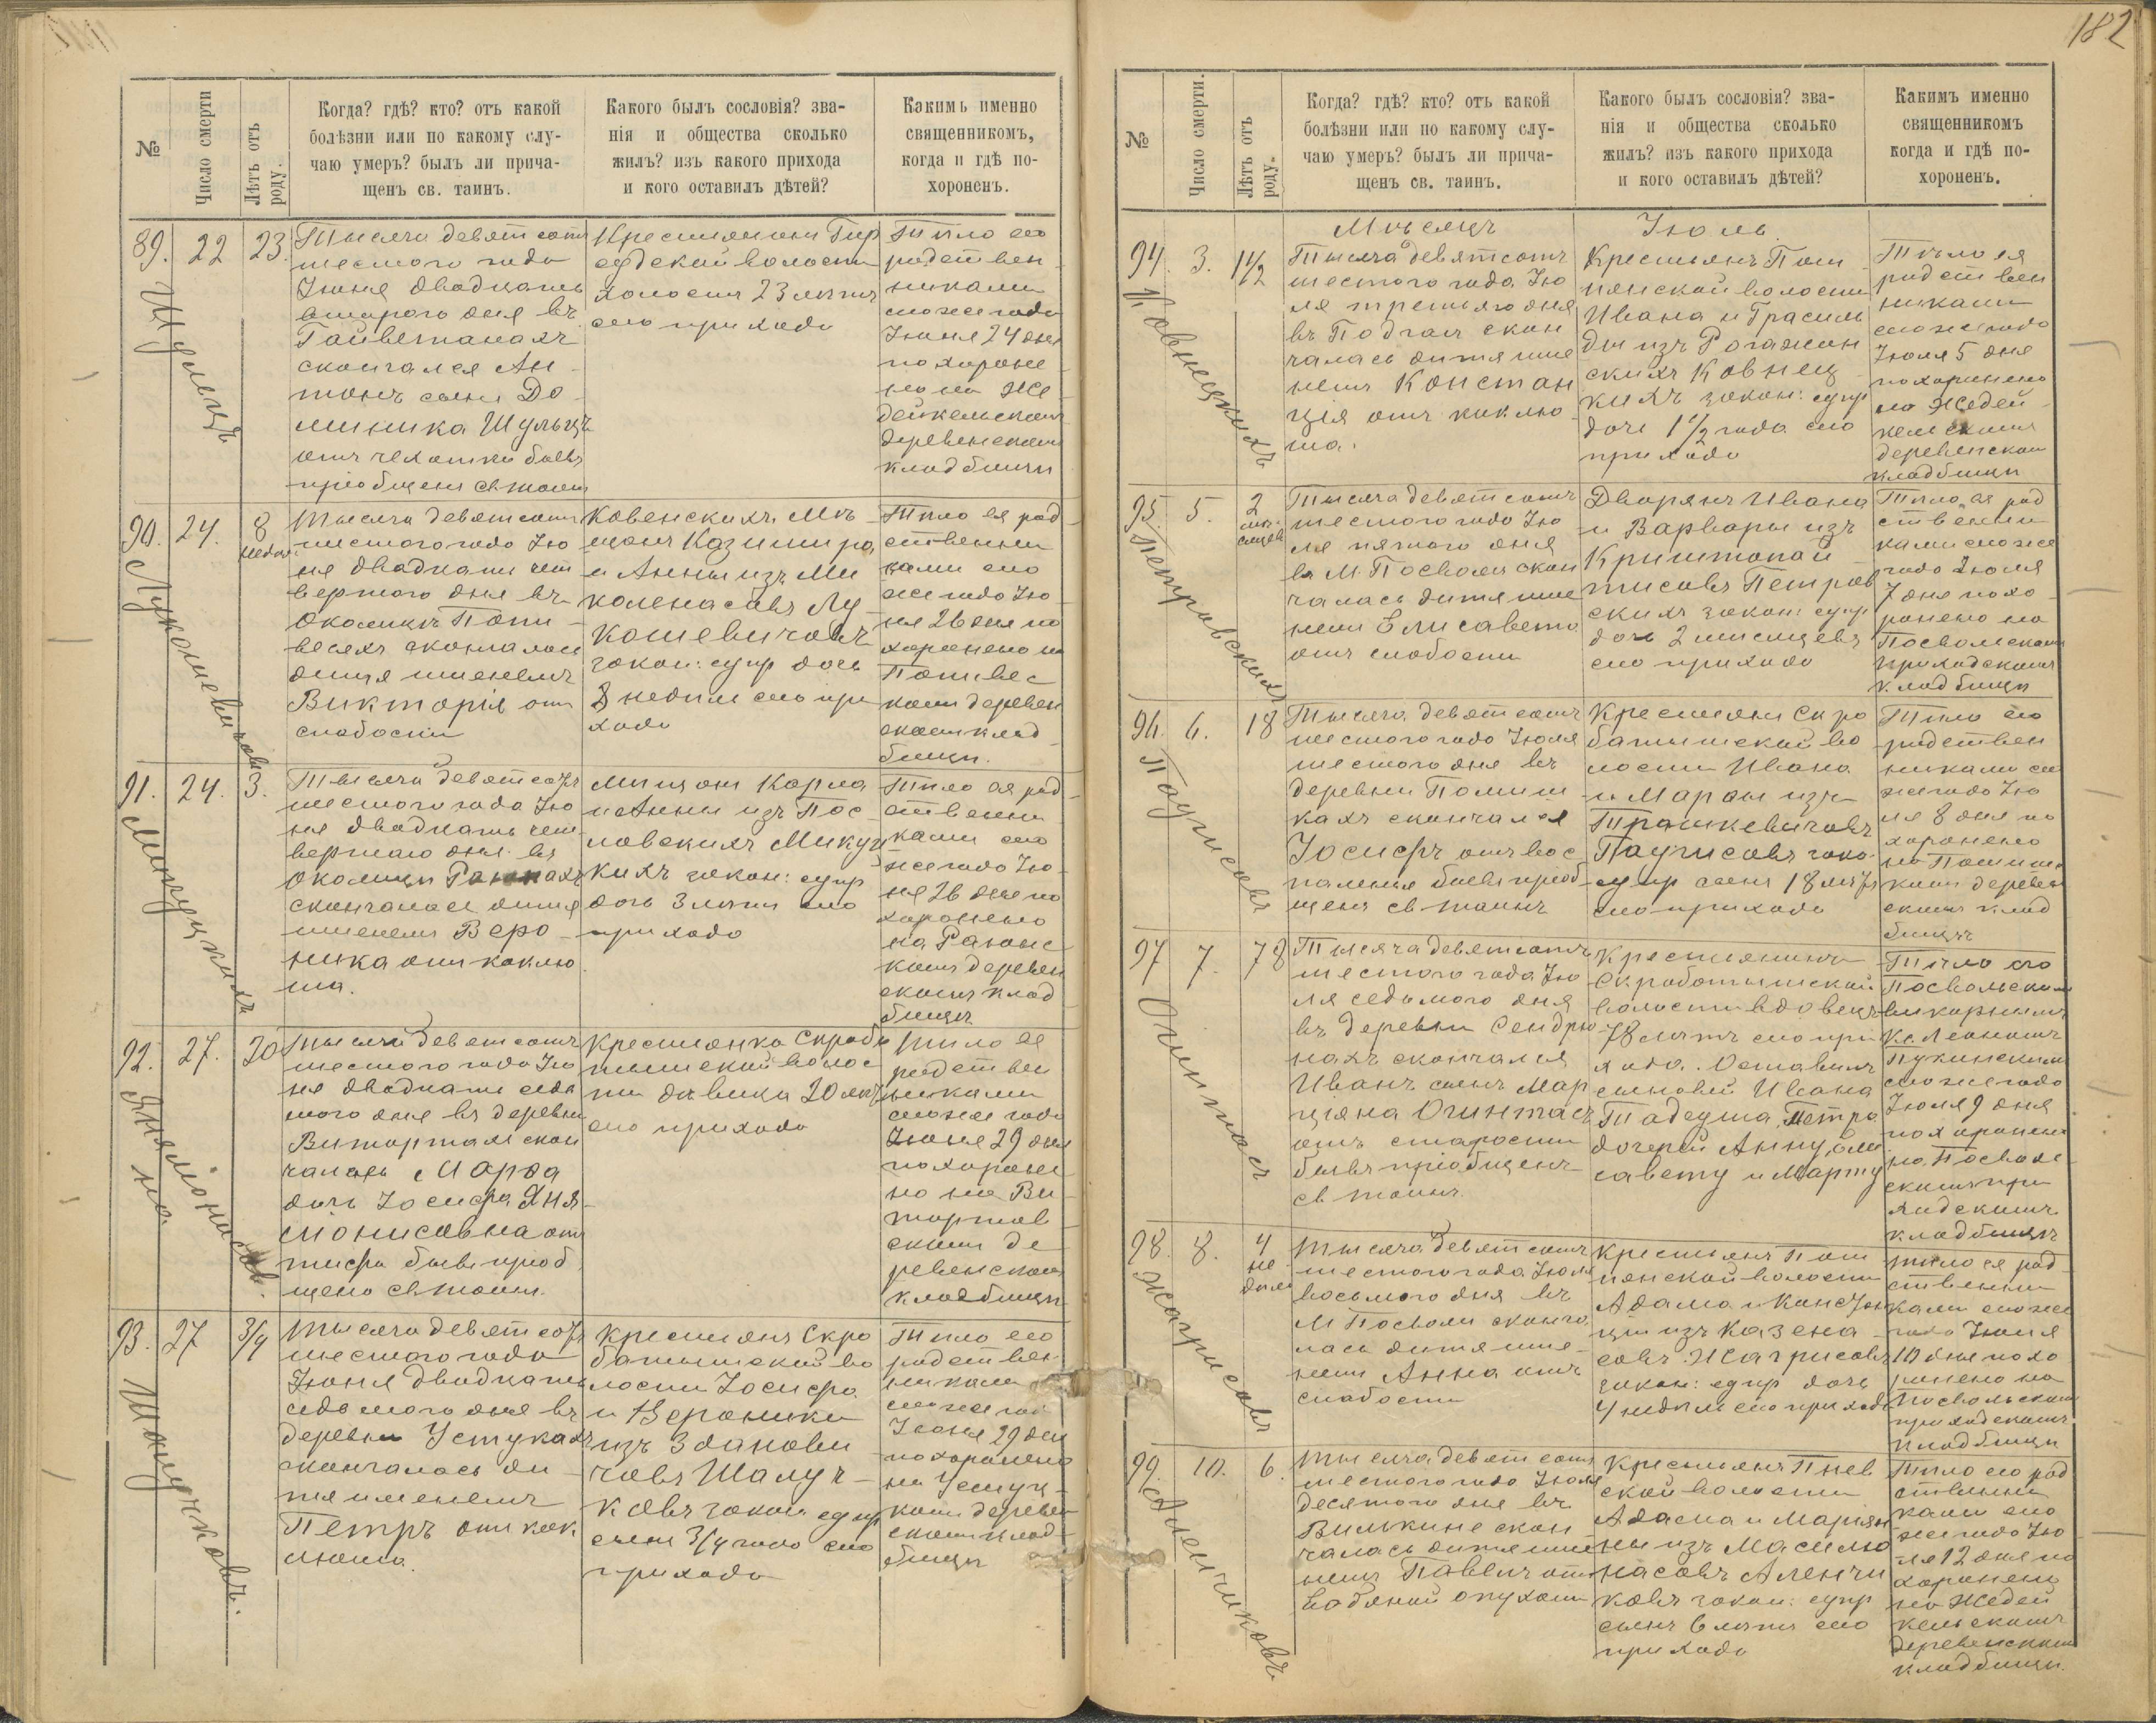 182
№
Число смерти
Лѣтъ отъ роду.
Когда? гдѣ? кто? отъ какой
болѣзни или по какому слу-
чаю умеръ? былъ ли прича-
щенъ св. таинъ.
Какого былъ сословія? зва-
нія и общества сколько
жилъ? изъ какого прихода
и кого оставилъ дѣтей?
Какимъ именно
священникомъ,
когда и гдѣ по-
хороненъ.
89.
Шульцъ
22
23.
Тысяча девятсотъ
шестого года
Іюня двадцать
второго дня въ
Гайветанахъ
скончался Ан-
тонъ сынъ До-
миника Шульцъ
отъ чехотки бывъ
пріобщенъ св таинъ
волости
холостъ 23 лѣтъ
сего прихода
Тѣло его
родствен
никами
сего же года
Іюня 24 дня
похороне
но на Же
дейкельскомъ
деревенскомъ
кладбищи
90.
Лукошевичовъ
24.
8
недѣль
Тысяча девятсотъ
шестого года Ію
ня двадцать чет
вертого дня въ
околицѣ Поти-
весяхъ скончалось
дитя именемъ
Викторія отъ
слабости
Ковенскихъ мѣ-
щанъ Казимира
и Анны изъ Ми
коленасовъ Лу-
кошевичовъ
закон: супр дочь
8 недѣль сего при
хода
Тѣло ея род
ственни
ками сего
же года Ію
ня 26 дня по
хоронено на
Потивес
комъ деревен
скомъ клад
бищи.
91.
Микуцкихъ
24.
3.
Тысяча девятсотъ
шестого года Ію
ня двадцать чет
вертого дня въ
околицѣ
скончалось дитя
именемъ Веро-
ника отъ коклю
ша.
Мѣщанъ Карла
и Анны изъ Пос-
ловскихъ Микуц
кихъ закон: супр
дочь 3 лѣтъ сего
прихода
Тѣло ея род
ственни
ками сего
же года Ію-
ня 26 дня по
хоронено
на
комъ деревен
скомъ клад
бищи
92.
27.
20
Тысяча девятсотъ
шестого года Ію
ня двадцать седь
мого дня въ деревни
Витортахъ скон
чалась Марта
дочь Іосифа Яня-
ліонисовна отъ
тифа бывъ пріоб
щено св таинъ.
Крестьянка Скробо
тышской волос
ти дѣвица 20 лѣтъ
сего прихода
Тѣло ея
родствен
никами
сего же года
Іюня 29 дня
похороне
но на Ви
тортов
скомъ де
ревенскомъ
кладбищи
93.
Шалучковъ.
27
3/4
Тысяча девятсотъ
шестого года
Іюня двадцать
седьмого дня въ
деревни Устукахъ
скончалось ди-
тя именемъ
Петръ отъ кок
люша.
Крестьянъ Скро
ботышской во
лости Іосифа
и Вероники
изъ Зданови
човъ Шалуч-
ковъ закон супр
сынъ 3/4 года сего
прихода
Тѣло его
родствен
никами
сего же года
Іюня 29 дня
похоронено
на Устуч-
комъ деревен
скомъ клад-
бищи
№
Число смерти.
Лѣтъ отъ роду.
Когда? гдѣ? кто? отъ какой
болѣзни или по какому слу-
чаю умеръ? былъ ли прича-
щенъ св. таинъ.
Какого былъ сословія? зва-
нія и общества сколько
жилъ? изъ какого прихода
и кого оставилъ дѣтей?
Какимъ именно
священникомъ
когда и гдѣ по-
хороненъ.
Мѣсяцъ Іюль.
94.
Ковнецкихъ
3.
1 1/2
Тысяча девятсотъ
шестого года Ію
ля третьяго дня
въ Подгаи скон
чалась дитя име
немъ Констан
ція отъ коклю
ша.
Крестьянъ Пом
пянской волости
Ивана и Грасиль
ды изъ Рогажин
скихъ Ковнец-
кихъ закон: супр
дочь 1 1/2 года сего
прихода
Тѣло ея
родствен
никами
сего же года
Іюля 5 дня
похоронено
на Жедей
кельскомъ
деревенском
кладбищи
95.
Петровскихъ
5.
2
мѣ-
сяцевъ
Тысяча девятсотъ
шестого года Ію
ля пятого дня
въ М. Посволи скон
чалась дитя име
немъ Елисавета
отъ слабости
Дворянъ Ивана
и Варвары изъ
Криштопай
тисовъ Петров
скихъ закон: супр
дочь 2 мѣсяцевъ
сего прихода
Тѣло ея род
ственни
ками сего же
года Іюля
7 дня похо
ронено на
Посвольскомъ
приходскомъ
кладбищи
96.
Паугисовъ
6.
18
Тысяча девятсотъ
шестого года Іюля
шестого дня въ
деревни Помиш
кахъ скончался
Іосифъ отъ вос
паленія бывъ пріоб
щенъ св таинъ
Крестьянъ Скро
ботышской во
лости Ивана
и Марты изъ
Трашкевичовъ
Паугисовъ зако
супр сынъ 18 лѣтъ
сего прихода
Тѣло его
родствен
никами сего
же года Ію
ля 8 дня по
хоронено
на Помиш
комъ деревен
скомъ клад
бищи
97
Огинтасъ
7.
78
Тысяча девятсотъ
шестого года Ію
ля седьмого дня
въ деревни Сендрю
нахъ скончался
Иванъ сынъ Мар
ціяна Огинтасъ
отъ старости
бывъ пріобщенъ
св таинъ.
Крестьянинъ
Скроботышской
волости вдовецъ
78 лѣтъ сего при
хода. Оставилъ
сыновей Ивана
Тадеуша, Петра
дочерей Анну, Ели
савету и Марту
Тѣло его
Посвольскимъ
викарнымъ
Кс. Леономъ
Пукинскимъ
сего же года
Іюля 9 дня
похоронено
на Посволь
скомъ при
ходскомъ
кладбищи
98.
Жагрисовъ
8.
4
не
дѣли
Тысяча девятсотъ
шестого года Іюля
восьмого дня въ
М Посволи сконча
лась дитя име-
немъ Анна отъ
слабости
Крестьянъ Пом
пянской волости
Адама и Констан
ціи изъ Казена-
совъ Жагрисовъ
закон: супр дочь
4 недѣли сего прихода
Тѣло ея род
ственни
ками сего же
года Іюля
10 дня похо
ронено на
Посвольскомъ
приходскомъ
кладбищи
99.
Аленчиковъ
10.
6.
Тысяча девятсотъ
шестого года Іюля
десятого дня въ
Вилькине скон-
чалась дитя име
немъ Павелъ отъ
водяной опухоли
Крестьянъ Пнев
ской волости
Адама и Маріян
ны изъ Масилю
насовъ Аленчи
ковъ закон: супр
сынъ 6 лѣтъ сего
прихода
Тѣло его род
ственни
ками сего
же года Ію
ля 12 дня по
хоронено
на Жедей
кельскомъ
деревенскомъ
кладбищи.